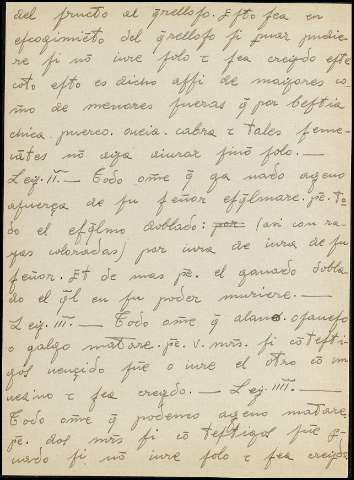 del fructo al q̃relloso. Esto sea en
escogimiẽto del q̃relloso si prouar pudie-
re si nõ iure solo τ sea creydo este
coto esto es dicho assi de mayores co-
mo de menores fueras q̃ por bestia
chica. puerco. oueia. cabra τ tales seme-
iãtes nõ aya aiurar sinõ solo. —
Ley. II. — Todo om̃e q̃ ga nado ageno
afuerça de su señor esq̃lmare. pe. to-
do el esq̃lmo doblado: por (asi con ra-
yas coloradas) por iura de iura de su
señor. Et de mas pe. el ganado dobla-
do el q̃l en su poder muriere. —
Ley. III. — Todo om̃e q̃ alano. o sauueso
o galgo matare. pe. v. mrs. si cõ testi-
gos uençido fue o iure el otro cõ un
uezino τ sea creydo. — Ley. IIII. —
Todo om̃e q̃ podenco ageno matare.
pe. dos mrs si cõ testigos fue p-
uado si nõ iure solo τ sea creydo